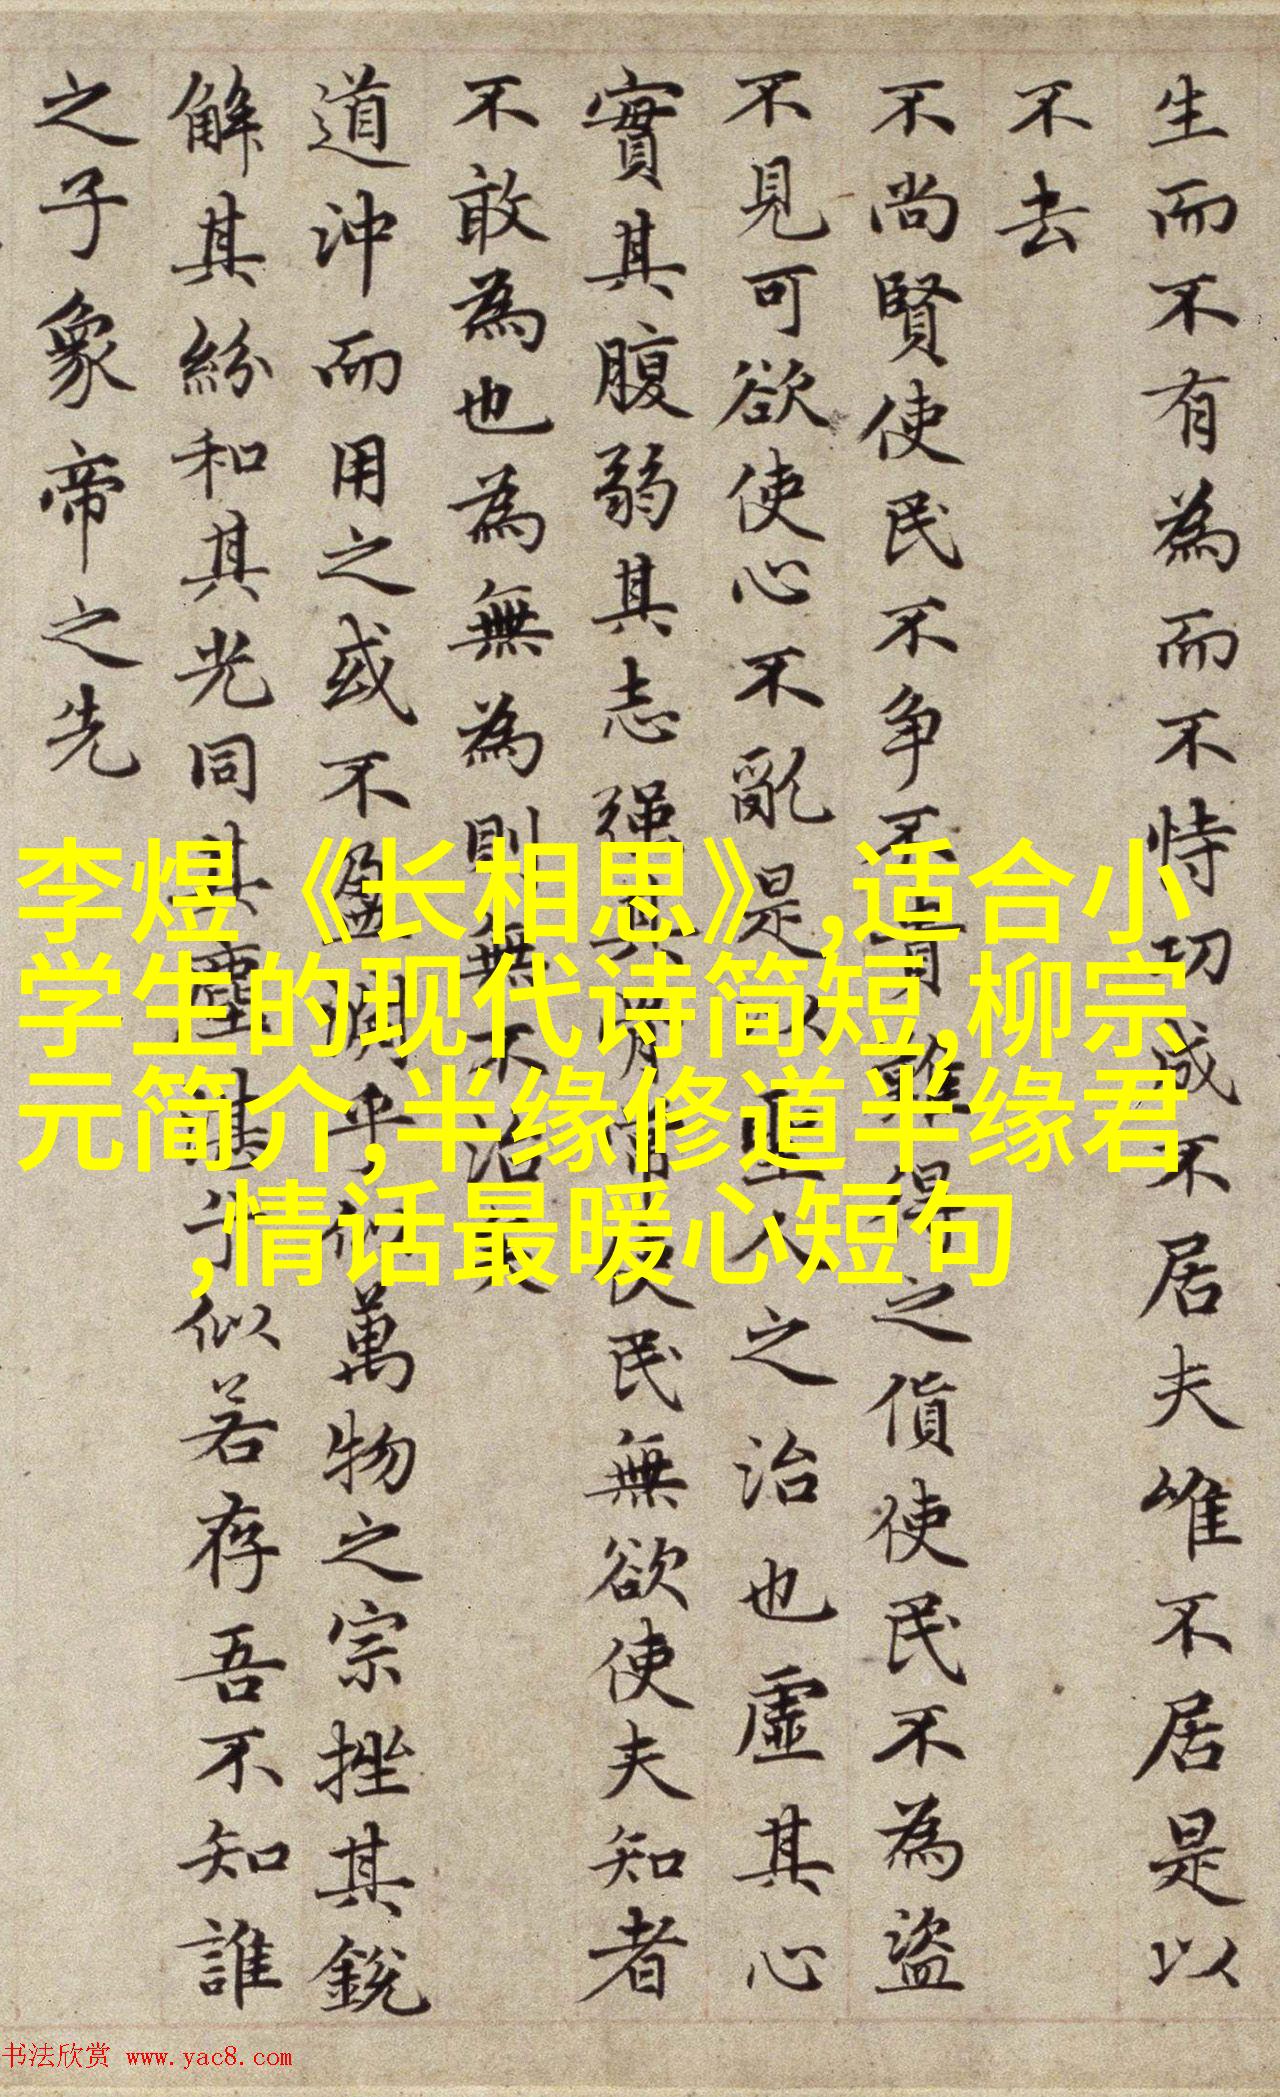 生而不有為而不恃功成不居夫唯不居是以
不去
不尚賢使民不争不貴難得之貨使民不為盜
不見可欲使心不亂是以聖人之治也虛其心
實其腹弱其志强其骨常使民無欲使夫知者
不敢為也為無為則無不治矣
道沖而用之或不盈淵乎似萬物之宗挫其銳
解其紛和其光同其塵湛乎似若存吾不知誰
之子象帝之先
李煜《长相思》,适合小
学生的现代诗简短,柳宗
元简介,半缘修道半缘君
,情话最暖心短句
书法欣赏 www.yac8.com